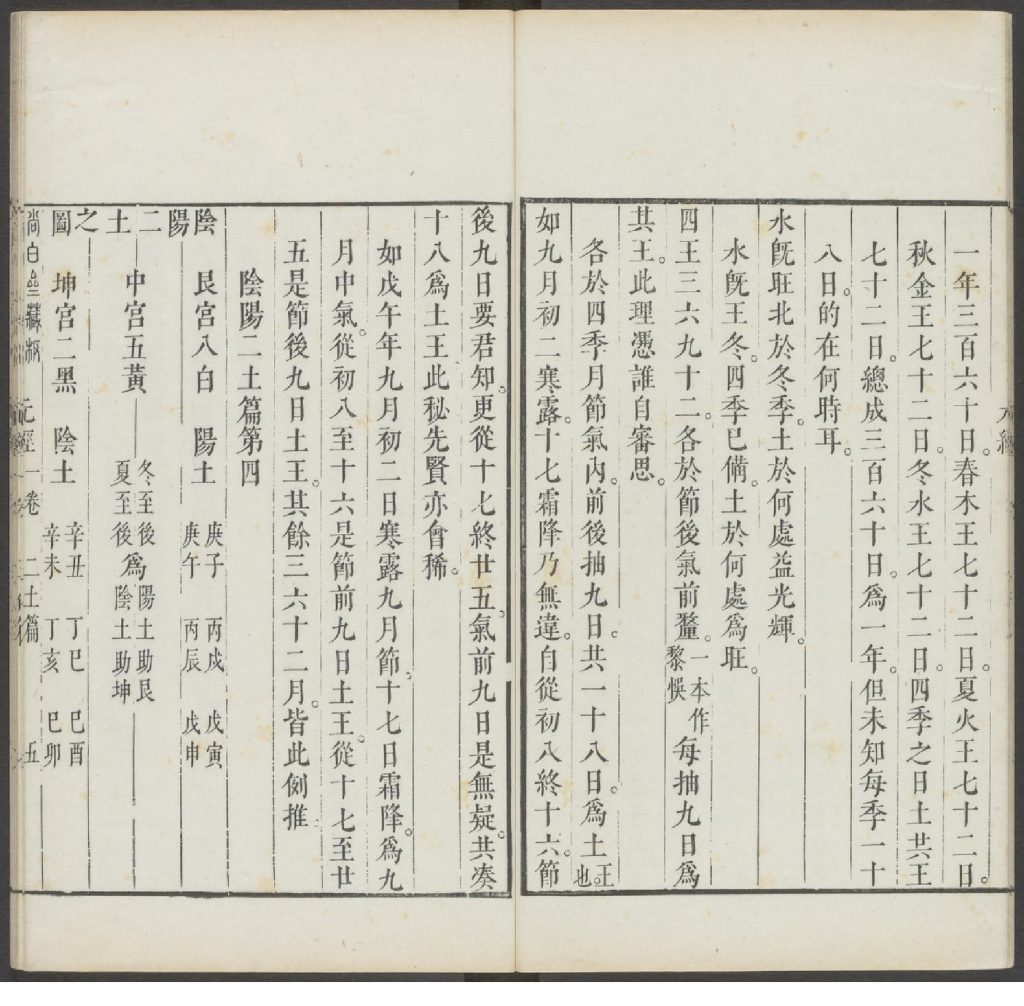 一年三百六十日。春木王七十二日。夏火王七十二日。
秋金王七十二日。冬水王七十二日。四季之日土共王
七十二日。總成三百六十日。爲一年。但未知每季一十
八日。的在何時耳。
水旣旺北於冬季。土於何處益光輝。
水旣王冬。四季已備。土於何處爲旺。
四王三六九十二。各於節後氣前釐。一本作黎悞每抽九日爲
其王。此理憑誰自審思。
各於四季月節氣內。前後抽九日。共一十八日。爲土王也。
如九月初二寒露。十七霜降乃無違。自從初八終十六。節
後九日要君知。更從十七終廿五。氣前九日是無疑。共凑
十八爲土王。此秘先賢亦會稀。
如戊午年九月初二日寒露九月節。十七日霜降。爲九
月中氣。從初八至十六是節前九日土王。從十七至廿
五是節後九日土王。其餘三六十二月。皆此例推
陰陽二土篇第四
陰陽二土之圖
艮宮八白 陽土 庚子 丙戌 戊寅
庚午 丙辰 戊申
中宮五黃 冬至後爲陽土助艮
夏至後爲陰土助坤
坤宮二黑 陰土 辛丑 丁巳 己酉
辛未 丁亥 己卯
尚白齋藏板 元經一卷 二土篇 五